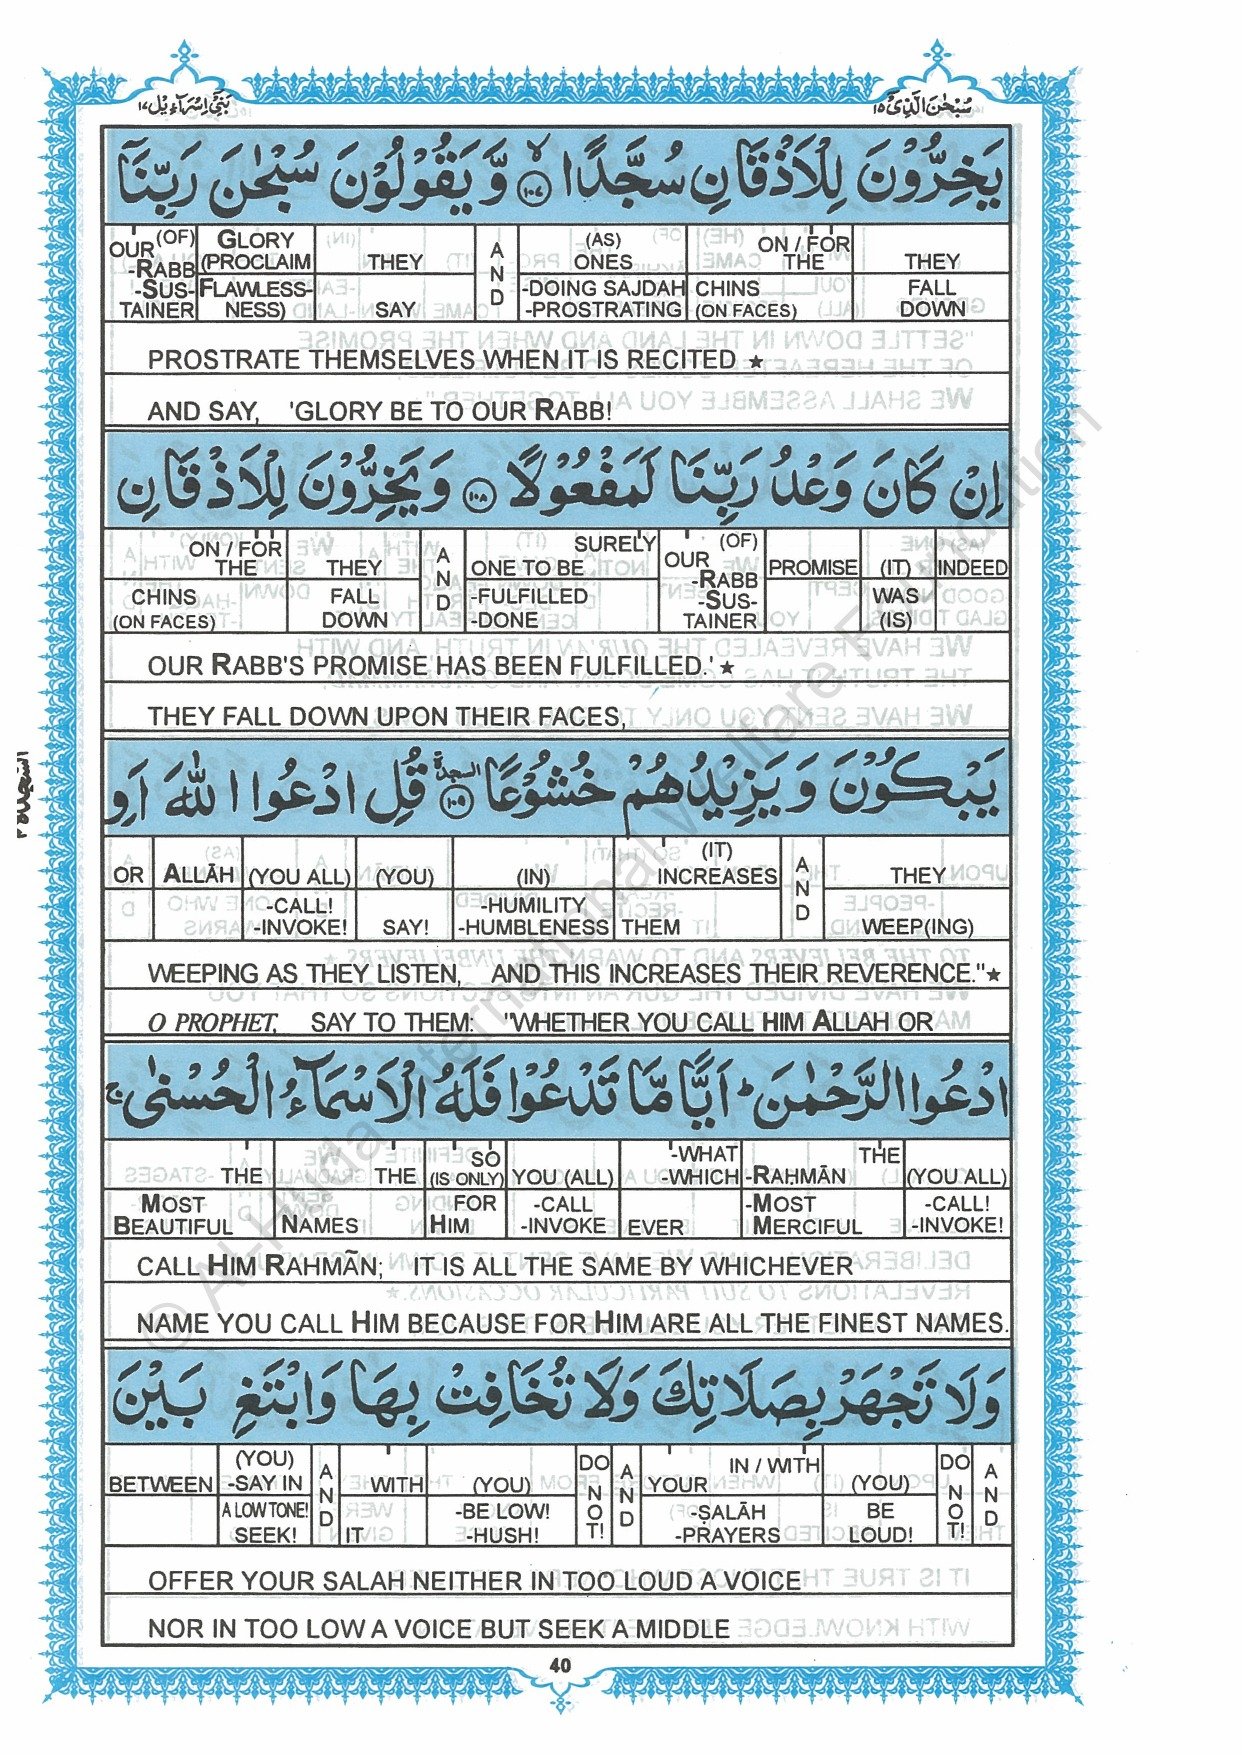 سُبْحٰنَ الَّذِیْۤ ١٥
بَنِیْۤ اِسْرَآءِیْل ١٧
یَخِرُّوْنَ لِلْاَذْقَانِ سُجَّدًا ۙ﴿١٠٧﴾ وَّ یَقُوْلُوْنَ سُبْحٰنَ رَبِّنَاۤ
OUR (OF) | GLORY | THEY | AND | (AS) ONES | ON / FOR THE | THEY
-RABB -SUS- TAINER | (PROCLAIM FLAWLESS- NESS) | SAY | -DOING SAJDAH -PROSTRATING | CHINS (ON FACES) | FALL DOWN
PROSTRATE THEMSELVES WHEN IT IS RECITED ★
AND SAY, 'GLORY BE TO OUR RABB!
اِنْ كَانَ وَعْدُ رَبِّنَا لَمَفْعُوْلًا ﴿١٠٨﴾ وَ یَخِرُّوْنَ لِلْاَذْقَانِ
ON / FOR THE | THEY | AND | SURELY ONE TO BE | OUR (OF) | PROMISE | (IT) | INDEED
CHINS (ON FACES) | FALL DOWN | -FULFILLED -DONE | -RABB -SUS- TAINER | WAS (IS)
OUR RABB'S PROMISE HAS BEEN FULFILLED.' ★
THEY FALL DOWN UPON THEIR FACES,
یَبْكُوْنَ وَ یَزِیْدُهُمْ خُشُوْعًا ﴿١٠٩﴾ السجدة قُلِ ادْعُوا اللّٰهَ اَوِ
السَّجْدَة ٤
OR | ALLĀH | (YOU ALL) | (YOU) | (IN) | (IT) INCREASES | AND | THEY
-CALL! -INVOKE! | SAY! | -HUMILITY -HUMBLENESS | THEM | WEEP(ING)
WEEPING AS THEY LISTEN, AND THIS INCREASES THEIR REVERENCE."★
O PROPHET, SAY TO THEM: "WHETHER YOU CALL HIM ALLAH OR
ادْعُوا الرَّحْمٰنَ ؕ اَیًّا مَّا تَدْعُوْا فَلَهُ الْاَسْمَآءُ الْحُسْنٰی ۚ
THE | THE | SO (IS ONLY) | YOU (ALL) | -WHAT -WHICH | THE -RAHMĀN | (YOU ALL)
MOST BEAUTIFUL | NAMES | FOR HIM | -CALL -INVOKE | EVER | -MOST MERCIFUL | -CALL! -INVOKE!
CALL HIM RAHMÃN; IT IS ALL THE SAME BY WHICHEVER
NAME YOU CALL HIM BECAUSE FOR HIM ARE ALL THE FINEST NAMES.
وَ لَا تَجْهَرْ بِصَلَاتِكَ وَ لَا تُخَافِتْ بِهَا وَ ابْتَغِ بَیْنَ
BETWEEN | (YOU) -SAY IN | AND | WITH | (YOU) | DO NOT! | AND | IN / WITH YOUR | (YOU) | DO NOT! | AND
A LOW TONE! SEEK! | IT | -BE LOW! -HUSH! | -ṢALĀH -PRAYERS | BE LOUD!
OFFER YOUR SALAH NEITHER IN TOO LOUD A VOICE
NOR IN TOO LOW A VOICE BUT SEEK A MIDDLE
40
© AL-Huda International Welfare Foundation